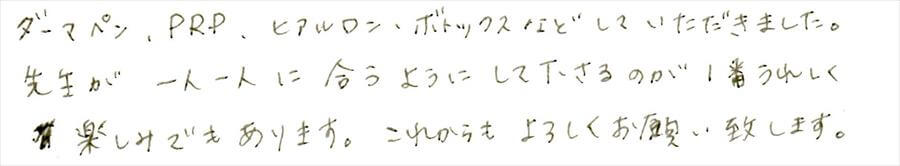 ダーマペン、PRP、ヒアルロン・ボトックスなどしていただきました。
先生が一人一人に合うようにして下さるのが1番うれしく
楽しみでもあります。これからもよろしくお願い致します。